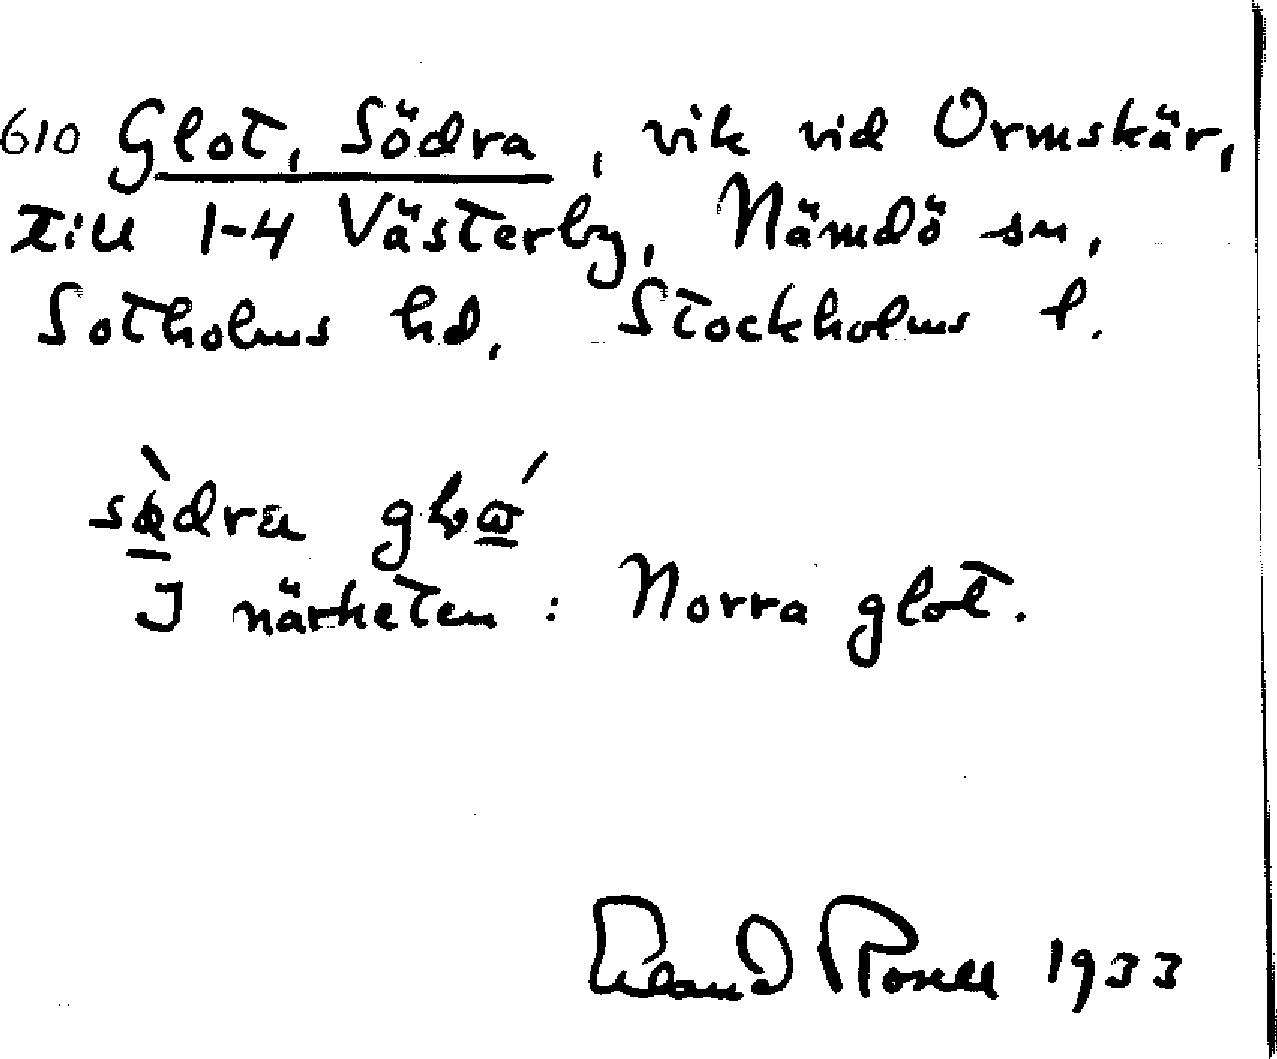 610 Glot, Södra, vik vid Ormskär,
till 1-4 Västerby, Nämdö sn,
Sotholms hd, Stockholms l.
södra
I närheten: Norra glot.
Erland Rosell 1933